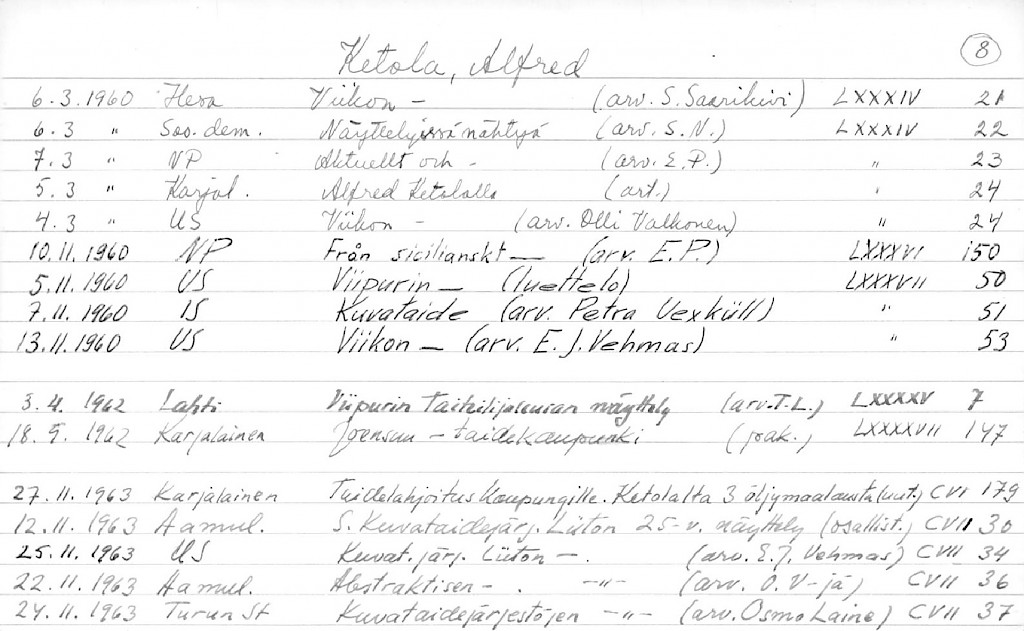 Ketola, Alfred 8
6.3.1960 Hesa Viikon — (arv. S. Saarikivi) LXXXIV 21
6.3 " Sos.dem. Näyttelyissä nähtyä (arv. S.N.) LXXXIV 22
7.3 " NP Aktuellt och - (arv. E.P.) " 23
5.3 " Karjal. Alfred Ketolalle (art.) " 24
4.3 " US Viikon - (arv. Olli Valkonen) " 24
10.11.1960 NP Från sicilianskt — (arv. E.P.) LXXXVI 150
5.11.1960 US Viipurin — (luettelo) LXXXVII 50
7.11.1960 IS Kuvataide (arv. Petra Uexküll) " 51
13.11.1960 US Viikon — (arv. E.J. Vehmas) " 53
3.4. 1962 Lahti Viipurin taiteilijaseuran näyttely (arv. T.L.) LXXXXV 7
18.9.1962 Karjalainen Joensuu - taidekaupunki (joak.) LXXXXVII 147
27.11.1963 Karjalainen Taidelahjoitus kaupungille. Ketolalta 3 öljymaalausta (uut.) CVI 179
12.11.1963 Aamul. S. Kuvataidejärj. Liiton 25-v. näyttely (osallist.) CVII 30
25.11.1963 US Kuvat.järj. Liiton — . (arv. E.J. Vehmas) CVII 34
22.11.1963 Aamul. Abstraktisen - . -"- (arv. O. V-jä) CVII 36
24.11.1963 Turun St Kuvataidejärjestöjen -"- (arv. Osmo Laine) CVII 37